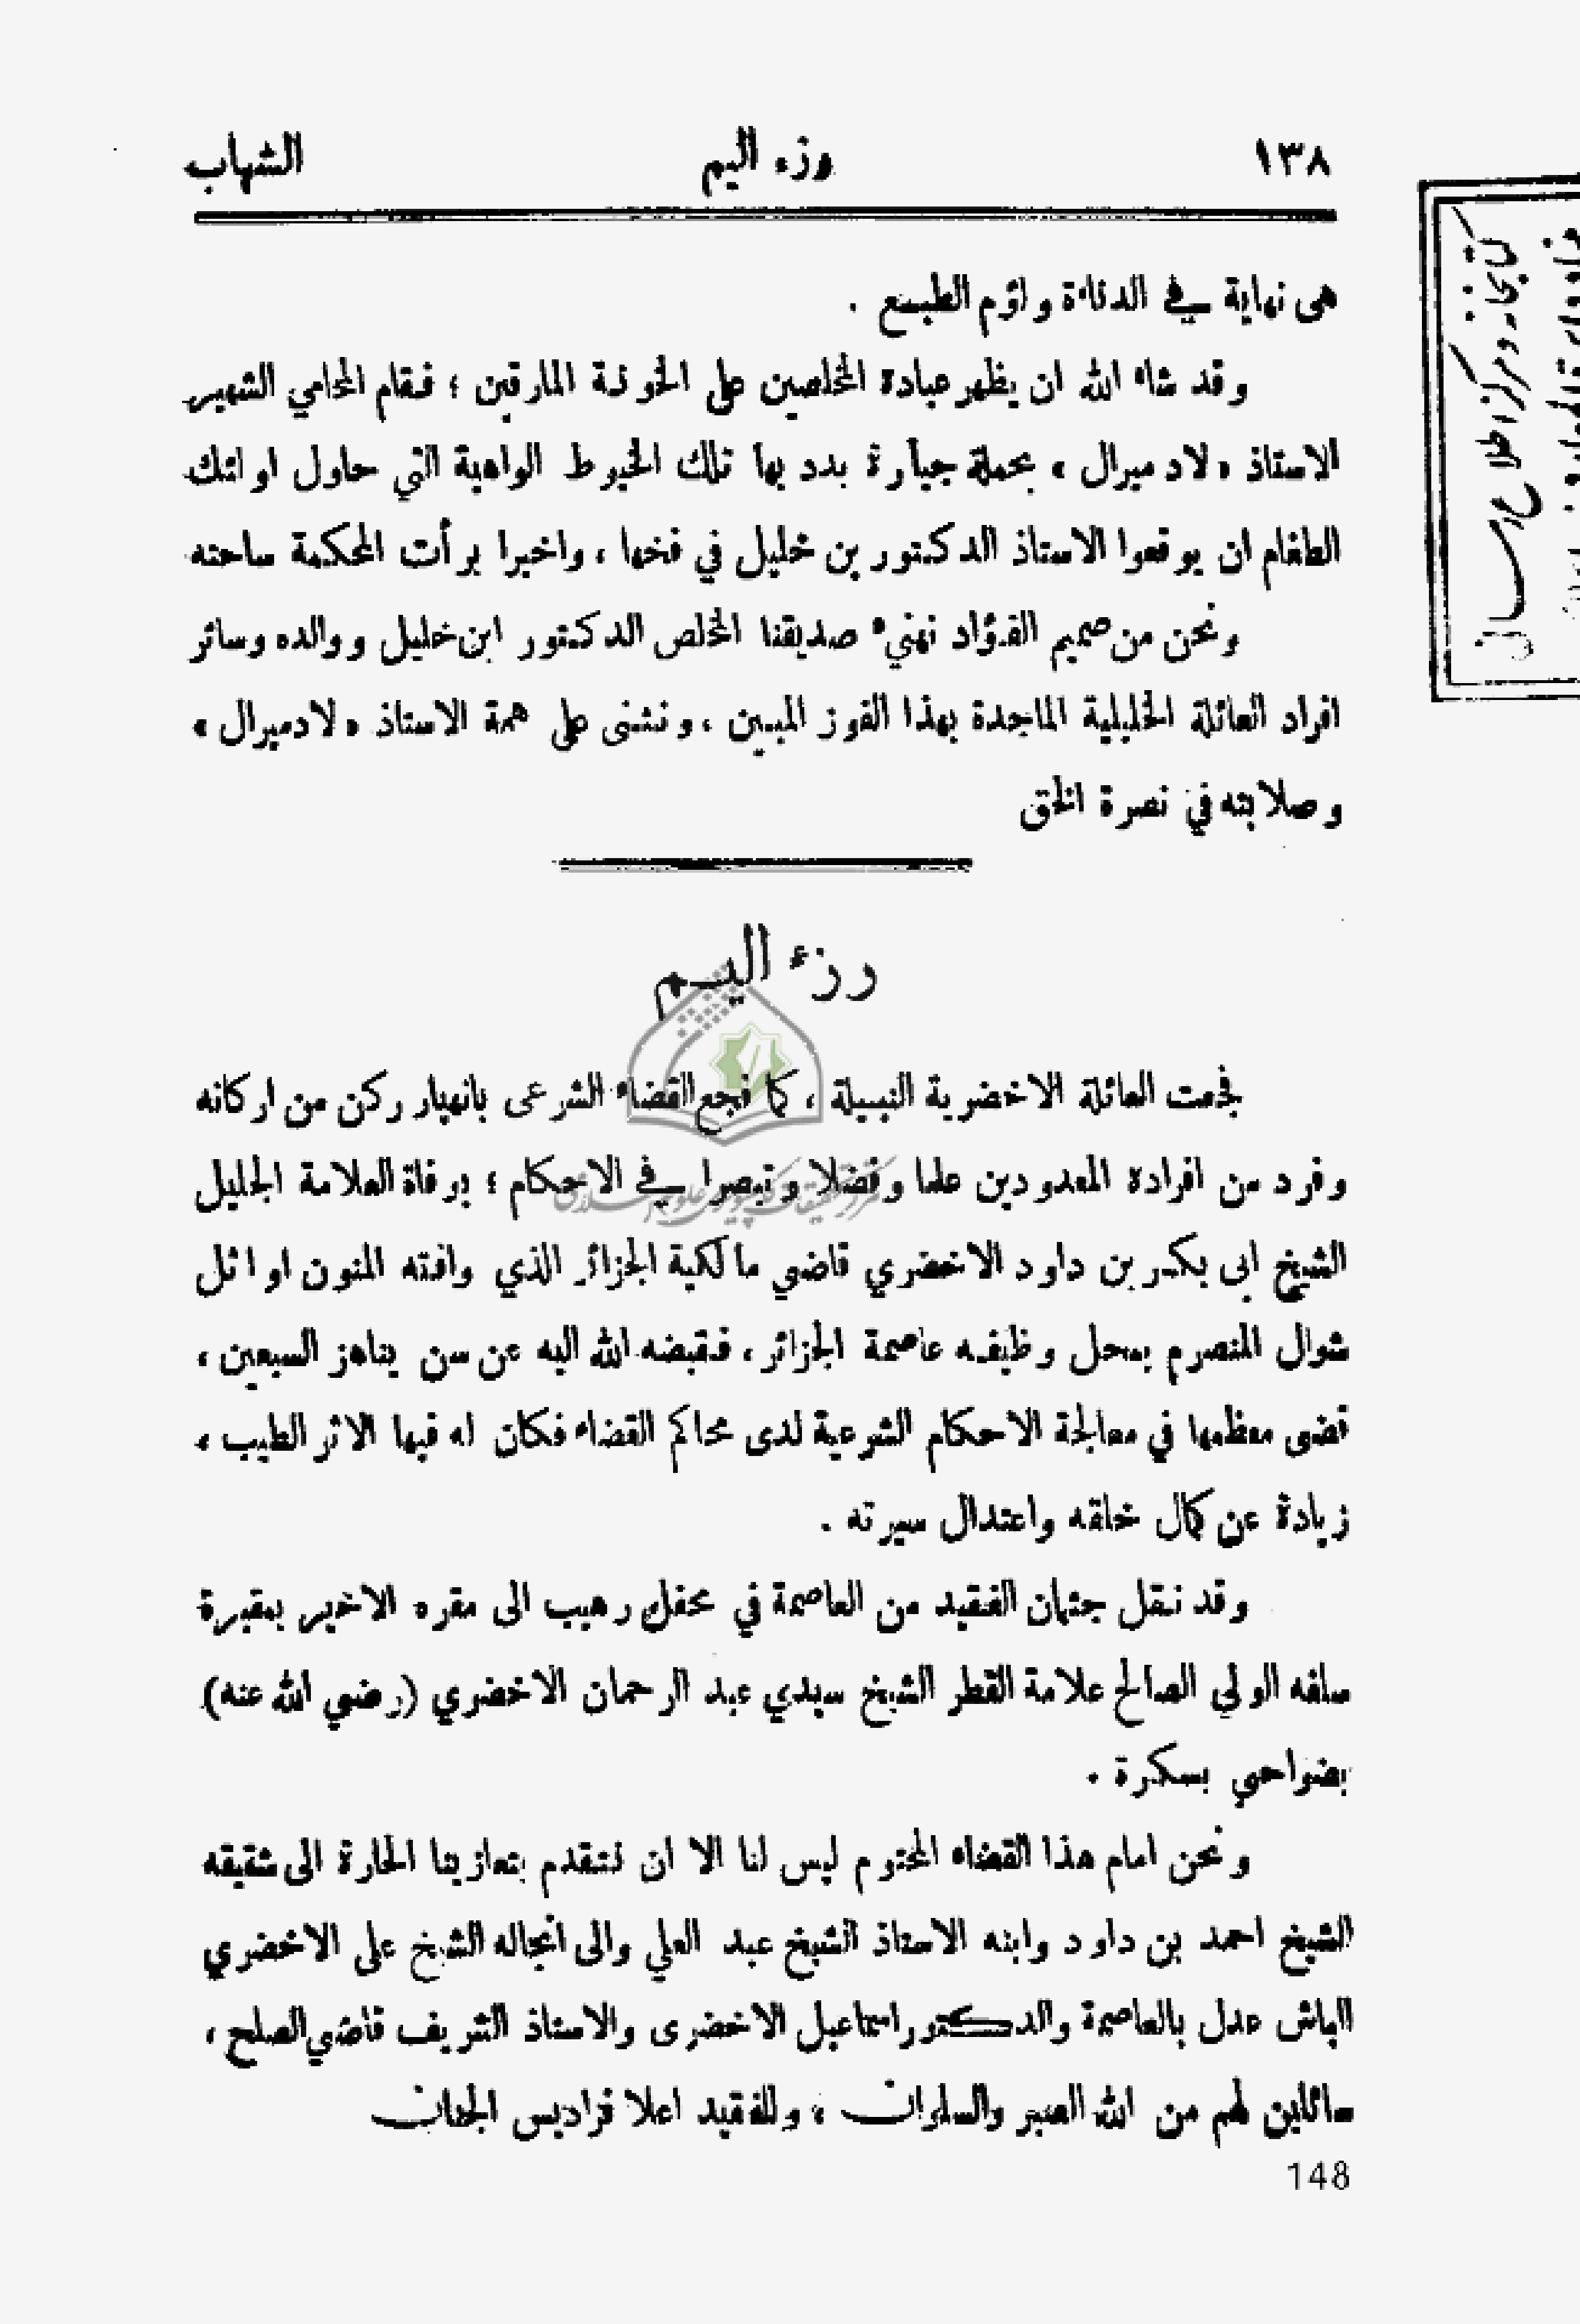 ١٣٨ رزء اليم الشهاب
هى نهاية في الدناءة ولؤم الطبع .
وقد شاء الله ان يظهر عباده المخلصين على الخونة المارقين ؛ فقام المحامي الشهير
الاستاذ « لادميرال » بحملة جبارة بدد بها تلك الخيوط الواهية التي حاول اولئك
الطغام ان يوقعوا الاستاذ الدكتور بن خليل في فخها ، واخيرا برأت المحكمة ساحته
ونحن من صميم الفؤاد نهنيء صديقنا المخلص الدكتور ابن خليل ووالده وسائر
افراد العائلة الخليلية الماجدة بهذا الفوز المبين ، ونثنى على همة الاستاذ « لادميرال »
وصلابته في نصرة الحق
رزء اليم
فجعت العائلة الاخضرية النبيلة ، كما فجع القضاء الشرعى بانهيار ركن من اركانه
وفرد من افراده المعدودين علما وفضلا وتبصرا في الاحكام ؛ بوفاة العلامة الجليل
الشيخ ابى بكر بن داود الاخضري قاضي مالكية الجزائر الذي وافته المنون اوائل
شوال المنصرم بمحل وظيفه عاصمة الجزائر ، فقبضه الله اليه عن سن يناهز السبعين ،
قضى معظمها في معالجة الاحكام الشرعية لدى محاكم القضاء فكان له فيها الاثر الطيب ،
زيادة عن كمال خلقه واعتدال سيرته .
وقد نقل جثمان الفقيد من العاصمة في محفل رهيب الى مقره الاخير بمقبرة
سلفه الولي الصالح علامة القطر الشيخ سيدي عبد الرحمان الاخضري (رضي الله عنه)
بضواحي بسكرة .
ونحن امام هذا القضاء المحتوم ليس لنا الا ان نتقدم بتعازينا الحارة الى شقيقه
الشيخ احمد بن داود وابنه الاستاذ الشيخ عبد العلي والى انجاله الشيخ على الاخضري
الباش عدل بالعاصمة والدكتور اسماعيل الاخضرى والاستاذ الشريف قاضي الصلح ،
سائلين لهم من الله الصبر والسلوان ، وللفقيد اعلا فراديس الجنان
148
كتابخانه ومركز اطلاع رسانى